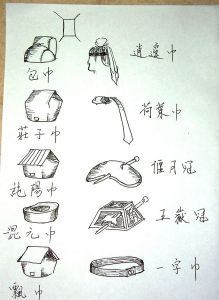 逍遙巾
包巾
荷葉巾
莊子巾
偃月冠
純陽巾
五嶽冠
混元巾
一字巾
飄巾